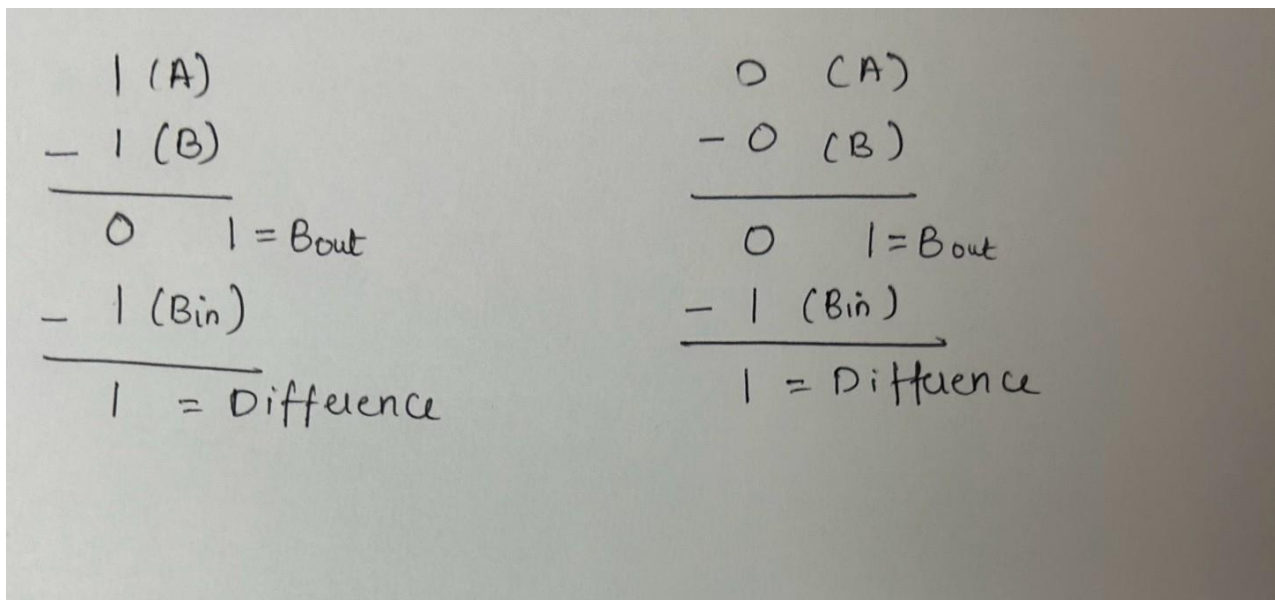 1 (A)
- 1 (B)
0 1 = Bout
- 1 (Bin)
1 = Difference
0 (A)
- 0 (B)
0 1 = Bout
- 1 (Bin)
1 = Difference